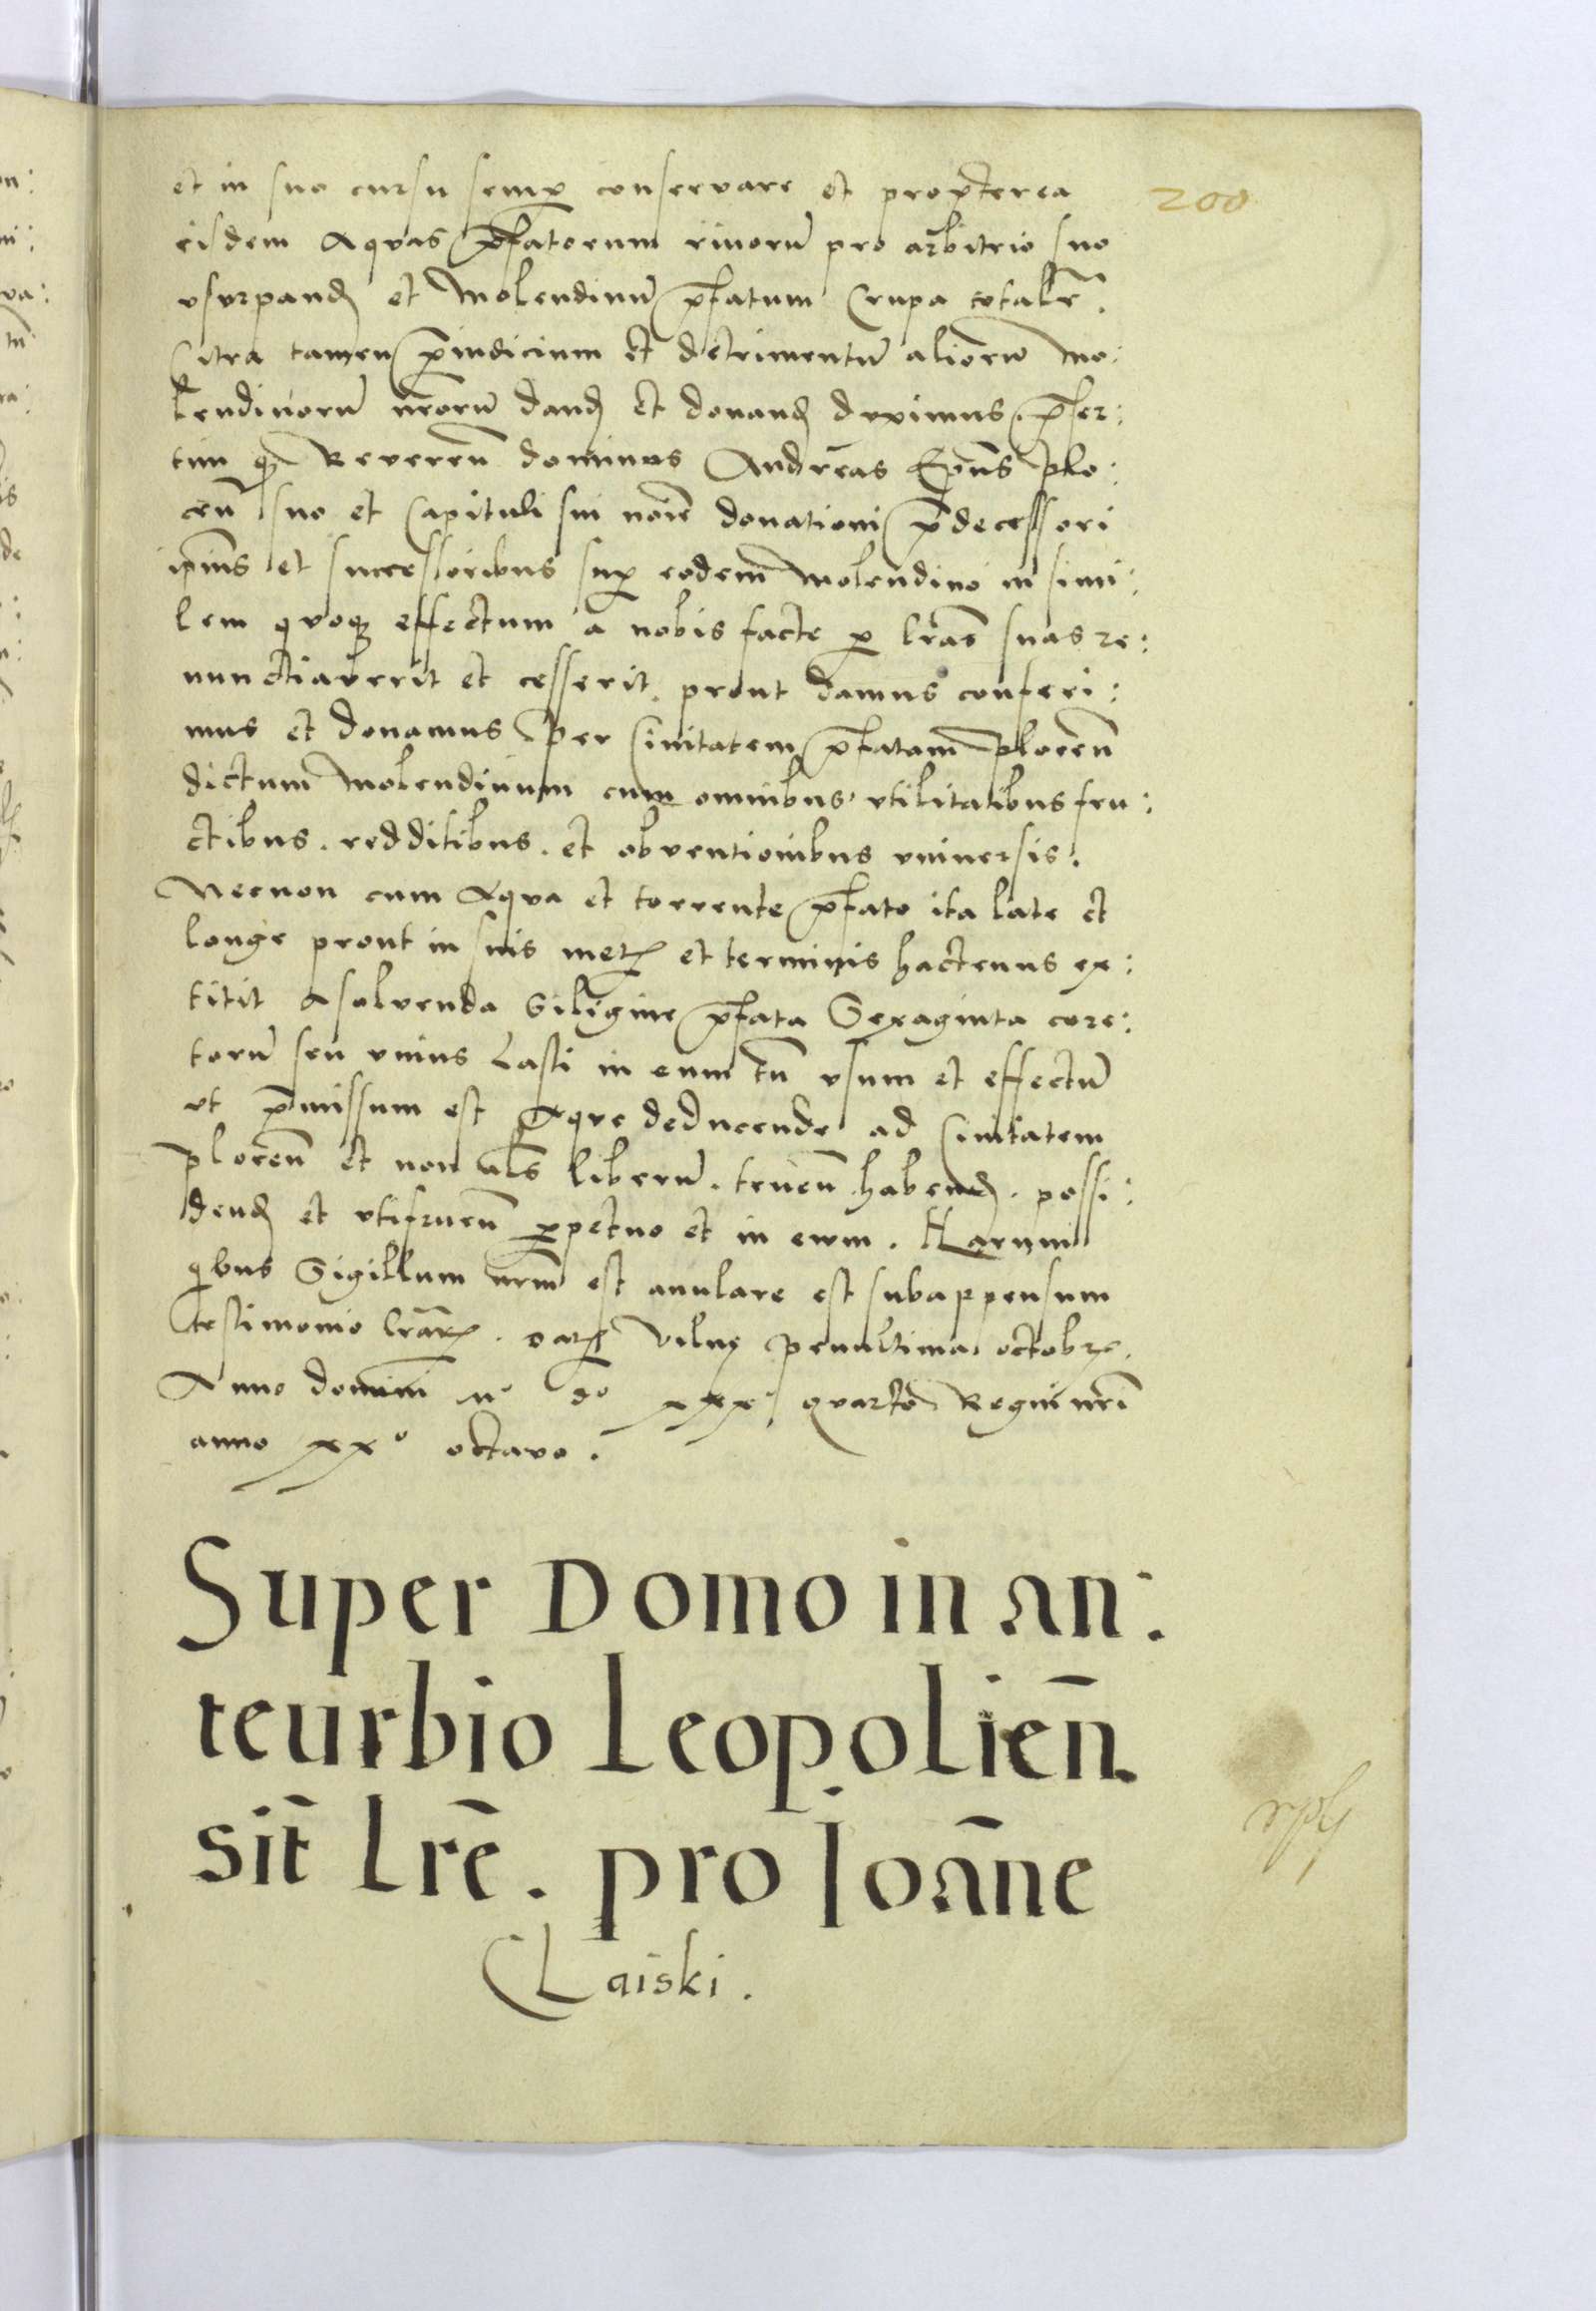 200
et in suo cursu semp̱ conservare et prop̱terea
eisdem Aquas p̄fatorum riuorū pro arbitrio suo
vsurpand et Molendinū p̄fatum Crupa totalr̄.
Citra tamen p̄iudicium et detrimentū aliorū mo:
lendinorū nr̄orū dand et donand duximus. p̄ser:
tim q Reveren̄ dominus Andreas Ep̄us plo:
cen̄ suo et Capituli sui noīe donationi p̄decessori
ip̄ius et successoribus sup̱ eodem Molendino in simi:
lem quoq effectum a nobis facte p̱ lrās suas re:
nunctiaverit et cesserit. prout damus conferi:
mus et donamus Per Ciuitatem p̄fatam plocen̄
dictum Molendinum cum omnibus vtilitatibus fru:
ctibus. redditibus. et obventionibus vniuersis.
Necnon cum Aqua et torrente p̄fato ita late et
longe prout in suis metꝭ et terminis hactenus ex:
titit A solvenda Siligine p̄fata Sexaginta core:
torū seu vnius Lasti in eum tn̄ vsum et effectū
vt p̄missum est Aque deducende ad Ciuitatem
plocen̄ et non als̄ liberū. tenen̄ habend. possi:
dend et vtifruen̄ p̱petuo et in ewm. Harum
qibus Sigillum nrm̄ est anulare est subappensum
testimonio lrārꝭ. Datꝭ Vilnę penultima octobrꝭ.
Anno domini Mº Dº xxxº quarto Regni nrī
anno xxº octavo.
Super Domo in an:
teurbio Leopolien̄.
sit̄ Lrē. pro Joān̄e
Laiski.